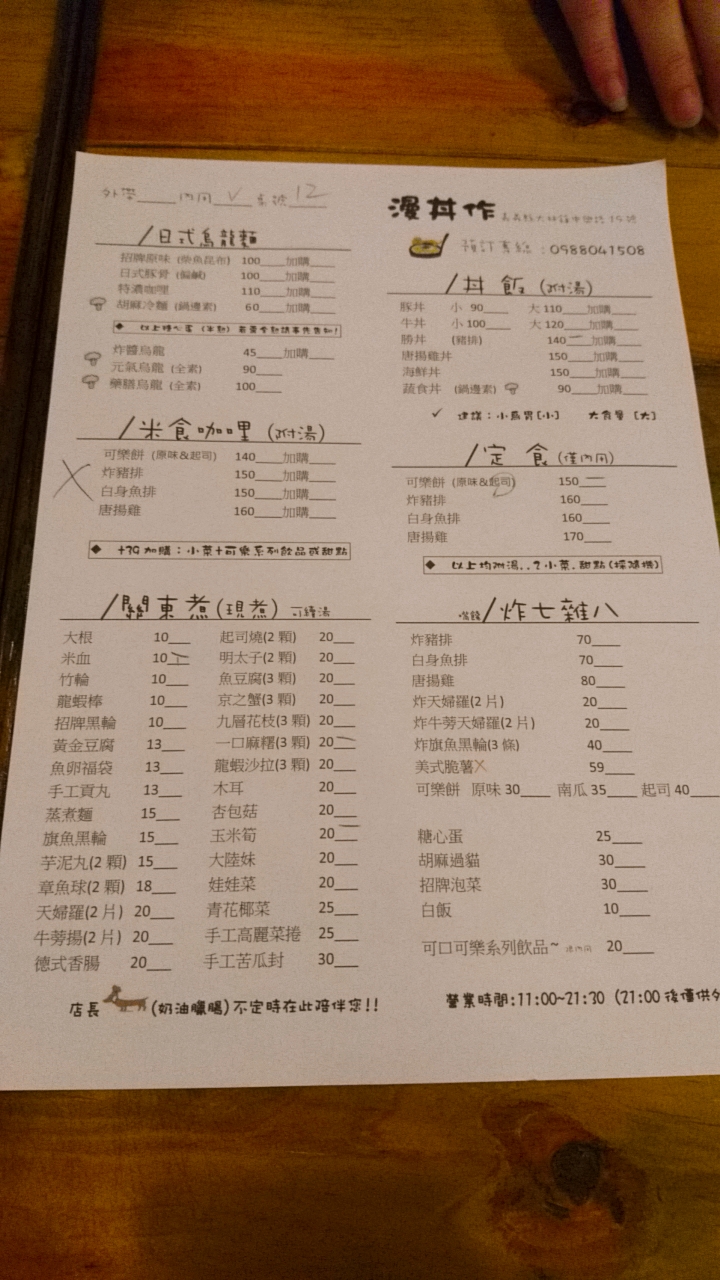 外帶____ 內用__✓__ 桌號 12
漫丼作
預訂專線:0988041508
/日式烏龍麵
招牌原味 (柴魚昆布) 100____加購____
日式豚骨 (偏鹹) 100____加購____
特濃咖哩 110____加購____
胡麻冷麵 (鍋邊素) 60____加購____
炸醬烏龍 45____加購____
元氣烏龍 (全素) 90____
藥膳烏龍 (全素) 100____
/丼 飯 (附湯)
豚丼 小 90____ 大 110____加購____
牛丼 小 100____ 大 120____加購____
勝丼 (豬排) 140____加購____
唐揚雞丼 150____加購____
海鮮丼 150____加購____
蔬食丼 (鍋邊素) 90____加購____
✓ 建議:小鳥胃[小] 大食量[大]
/米食咖哩 (附湯)
可樂餅 (原味&起司) 140____加購____
炸豬排 150____加購____
白身魚排 150____加購____
唐揚雞 160____加購____
◆ +39加購:小菜+可樂系列飲品或甜點
/定 食 (僅內用)
可樂餅 (原味&起司) 150____
炸豬排 160____
白身魚排 160____
唐揚雞 170____
◆ 以上均附湯..2小菜.甜點(採隨機)
/關東煮(現煮) 可續湯
大根 10____ 起司燒(2 顆) 20____
米血 10____ 明太子(2 顆) 20____
竹輪 10____ 魚豆腐(3 顆) 20____
龍蝦棒 10____ 京之蟹(3 顆) 20____
招牌黑輪 10____ 九層花枝(3 顆) 20____
黃金豆腐 13____ 一口麻糬(3 顆) 20____
魚卵福袋 13____ 龍蝦沙拉(3 顆) 20____
手工貢丸 13____ 木耳 20____
蒸煮麵 15____ 杏包菇 20____
旗魚黑輪 15____ 玉米筍 20____
芋泥丸(2 顆) 15____ 大陸妹 20____
章魚球(2 顆) 18____ 娃娃菜 20____
天婦羅(2 片) 20____ 青花椰菜 25____
牛蒡揚(2 片) 20____ 手工高麗菜捲 25____
德式香腸 20____ 手工苦瓜封 30____
/炸七雜八
炸豬排 70____
白身魚排 70____
唐揚雞 80____
炸天婦羅(2 片) 20____
炸牛蒡天婦羅(2 片) 20____
炸旗魚黑輪(3 條) 40____
美式脆薯X 59____
可樂餅 原味 30____ 南瓜 35____ 起司 40____
糖心蛋 25____
胡麻過貓 30____
招牌泡菜 30____
白飯 10____
可口可樂系列飲品~ 20____
店長 (奶油臘腸)不定時在此陪伴您!!
營業時間:11:00~21:30 (21:00 後僅供外